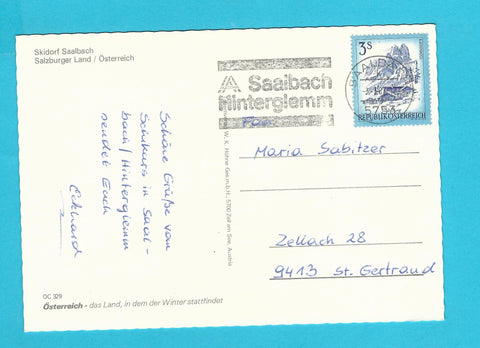 Skidorf Saalbach
Salzburger Land / Österreich
Saalbach
Hinterglemm
3 S
REPUBLIK ÖSTERREICH
5753
Schöne Grüße vom
Schikurs in Saal-
bach/Hinterglemm
sendet Euch
Eckhard
W. K. Höhne Ges.m.b.H., 5700 Zell am See, Austria
Fam.
Maria Sabitzer
Zellach 28
9413 St. Gertraud
OC 329
Österreich - das Land, in dem der Winter stattfindet